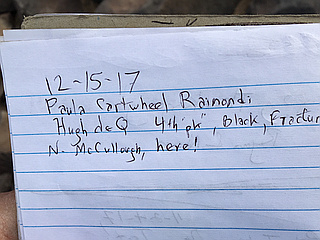 12-15-17
Paula Cartwheel Raimondi
Hugh deQ 4th "pk", Black, Fractur
N. McCullough, here!